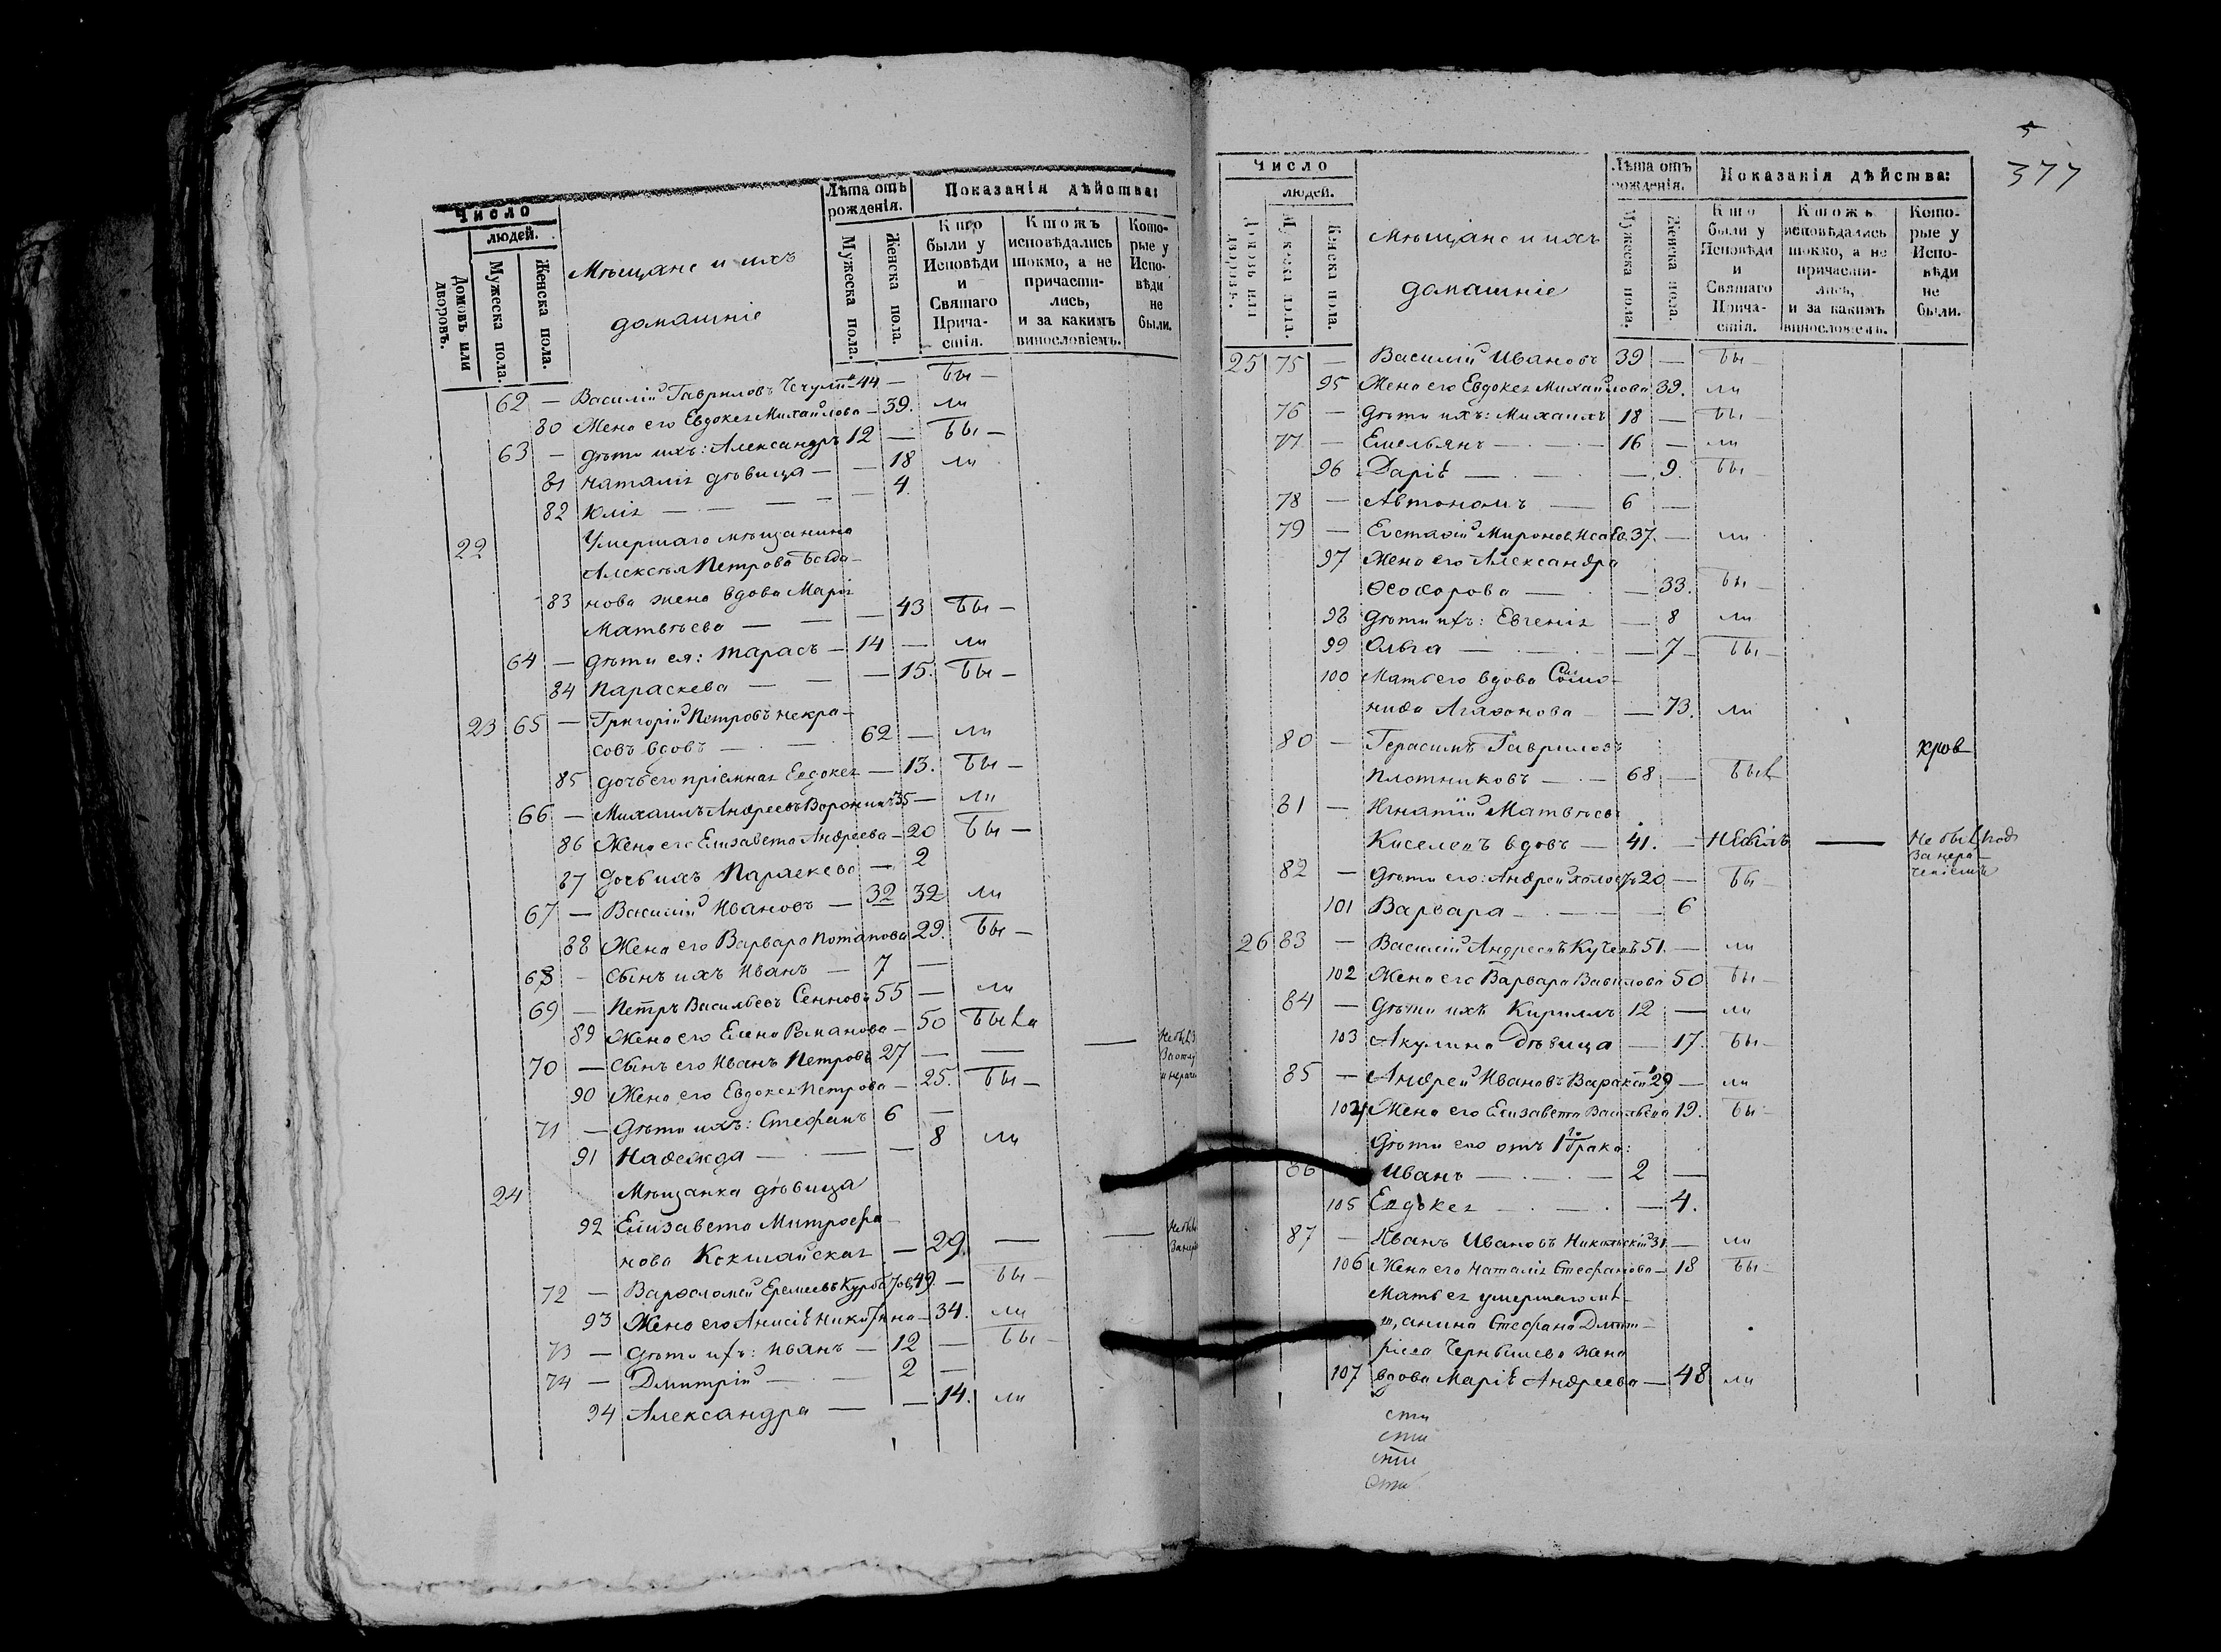 Число
людей.
Домовъ или дворовъ.
Мужеска пола.
Женска пола.
Мѣщане и ихъ
домашніе
Лѣта отъ
рожденія.
Мужеска пола.
Женска пола.
Показанія дѣйства:
Кто
были у
Исповѣди
и
Святаго
Прича-
стія.
Ктожъ
исповѣдались
токмо, а не
причасти-
лись,
и за какимъ
винословіемъ.
Кото-
рые у
Испо-
вѣди
не
были.
62 — Василій Гавриловъ 44 — бы —
80 Жена его Евдокея Михайлова — 39. ли
63 — дѣти ихъ: Александръ 12 — бы —
81 Наталія дѣвица — — 18 ли
82 Юлія — — — 4.
22 Умершаго мѣщанина
Алексѣя Петрова
83 нова жена вдова Марія
Матвѣева — — — 43 бы —
64 — дѣти ея: Тарасъ — 14 — ли
84 Параскева — — — 15. бы —
23 65 — Григорій Петровъ Некра-
совъ вдовъ — — 62 — ли
85 дочь его пріемная Евдокея — 13. бы —
66 — Михаилъ Андреевъ Воронинъ 35 — ли
86 Жена его Елизавета Андреева — 20 бы —
87 дочь ихъ Параскева — 2
67 — Василій Ивановъ — 32 32 ли
88 Жена его Варвара Потапова 29. бы —
68 — сынъ ихъ Иванъ — 7 —
69 — Петръ Васильевъ Сенновъ 55 — ли
89 Жена его Елена Романова — 50 была
70 — сынъ его Иванъ Петровъ 27 — — —
90 Жена его Евдокея Петрова — 25. бы —
71 — дѣти ихъ: Стефанъ 6 —
91 Надежда — — — 8 ли
24 Мѣщанка дѣвица
92 Елизавета Митрофа-
нова Кокшайская — 29. — —
72 — Варѳоломей Еремеевъ 49. — бы —
93 Жена его Анисія Никитина — 34. ли
73 — дѣти ихъ: Иванъ — 12 — бы —
74 — Дмитрій — — 2 —
94 Александра — — 14. ли
377
Число
людей.
Домовъ или дворовъ.
Мужеска пола.
Женска пола.
Мѣщане и ихъ
домашніе
Лѣта отъ
рожденія.
Мужеска пола.
Женска пола.
Показанія дѣйства:
Кто
были у
Исповѣди
и
Святаго
Прича-
стія.
Ктожъ
исповѣдались
токмо, а не
причасти-
лись,
и за какимъ
винословіемъ.
Кото-
рые у
Испо-
вѣди
не
были.
25 75 — Василій Ивановъ 39 — бы —
95 Жена его Евдокея Михайлова 39. ли
76 — дѣти ихъ: Михаилъ 18 — бы —
77 — Емельянъ — — 16 — ли
96 Дарія — — — 9. бы —
78 — Автономъ — 6 —
79 — Евстафій Миронов. 37. — ли
97 Жена его Александра
Ѳеодорова — — 33. бы —
98 дѣти ихъ: Евгенія — 8 ли
99 Ольга — — — 7 — бы —
100 Мать его вдова
нида Агафонова — 73. ли
80 — Герасимъ Гавриловъ
Плотниковъ — — 68 — былъ
81 — Игнатій Матвѣевъ
Киселевъ вдовъ — 41. — —
Не былъ
за нера-
ченіемъ
82 — дѣти его: Андрей холостъ 20 — бы —
101 Варвара — — — 6
26 83 — Василій Андреевъ 51. — ли
102 Жена его Варвара Вавилова 50 бы —
84 — дѣти ихъ Кириллъ 12 — ли
103 Акулина дѣвица — 17. бы —
85 — Андрей Ивановъ 29 — ли
104 Жена его Елизавета Васильева 19. бы —
дѣти его отъ 1го брака:
86 Иванъ — — — 2 —
105 Евдокея — — — 4.
87 — Иванъ Ивановъ 31 — ли
106 Жена его Наталія Стефанова — 18 бы —
Мать ея умершаго мѣ-
щанина Стефана Дмит-
ріева Чернышева жена
107 вдова Марія Андреева — 48 ли
сти
сти
сти
сти